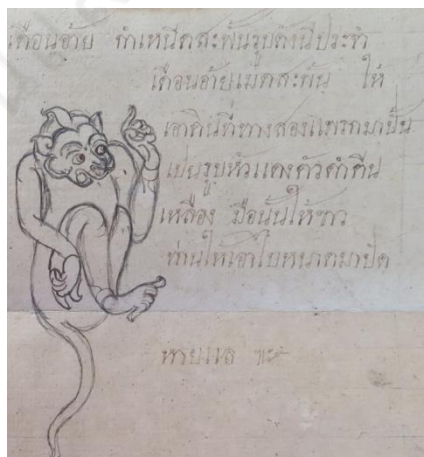 เดือนอ้าย กำเหนีดสะพั้นรูบดังนีประจำ
เดือนอ้ายเมดสะพั้น ให้
เอาดินที่ทางสองแพรกมาปั้น
เปนรูบหัวแดงตัวดำตีน
เหลือง มือนั้นให้ขาว
ท่านให้เอาใบหนาดมาปัด
หายแล ๚ะ